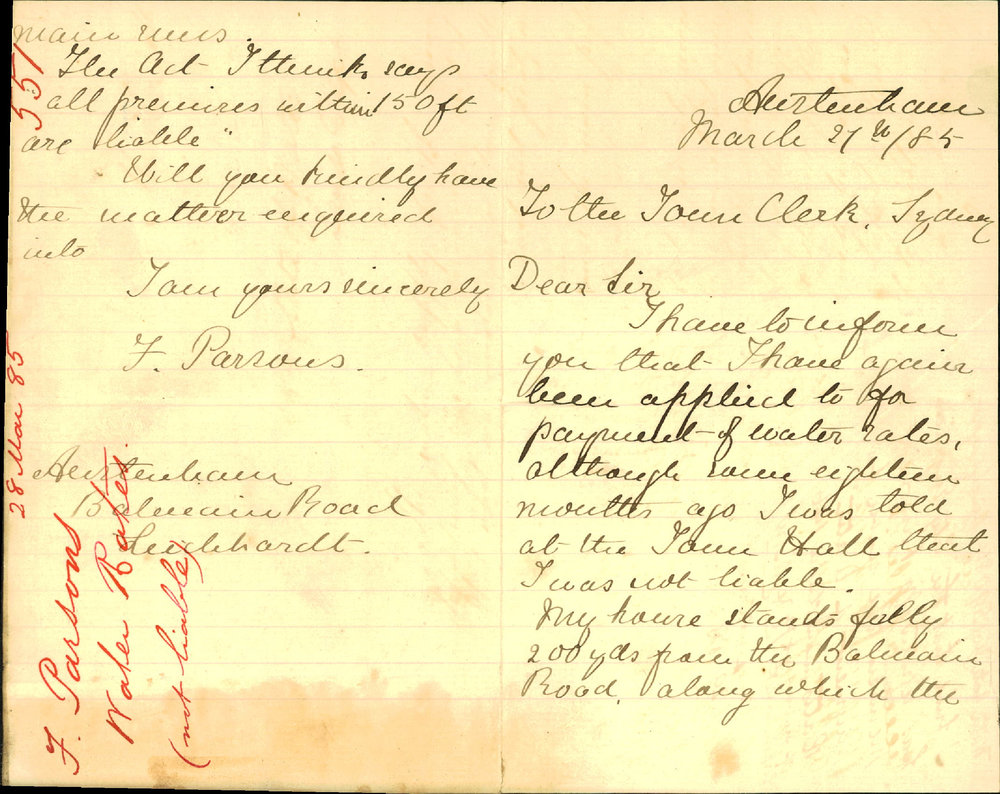 March 27th/85
To the Town Clerk, Sydney
Dear Sir
I have to inform
you that I have again
been applied to for
payment of water rates,
although some eighteen
months ago I was told
at the Town Hall that
I was not liable.
My house stands fully
200 yds from the Balmain
Road, along which the
main runs.
The Act I think says
"all premises within 150 ft
are liable"
Will you kindly have
the matter enquired
into
I am yours sincerely
F. Parsons.
Balmain Road
Leichhardt.
551
28 Mar 85
F. Parsons
Water Rates
(not liable)